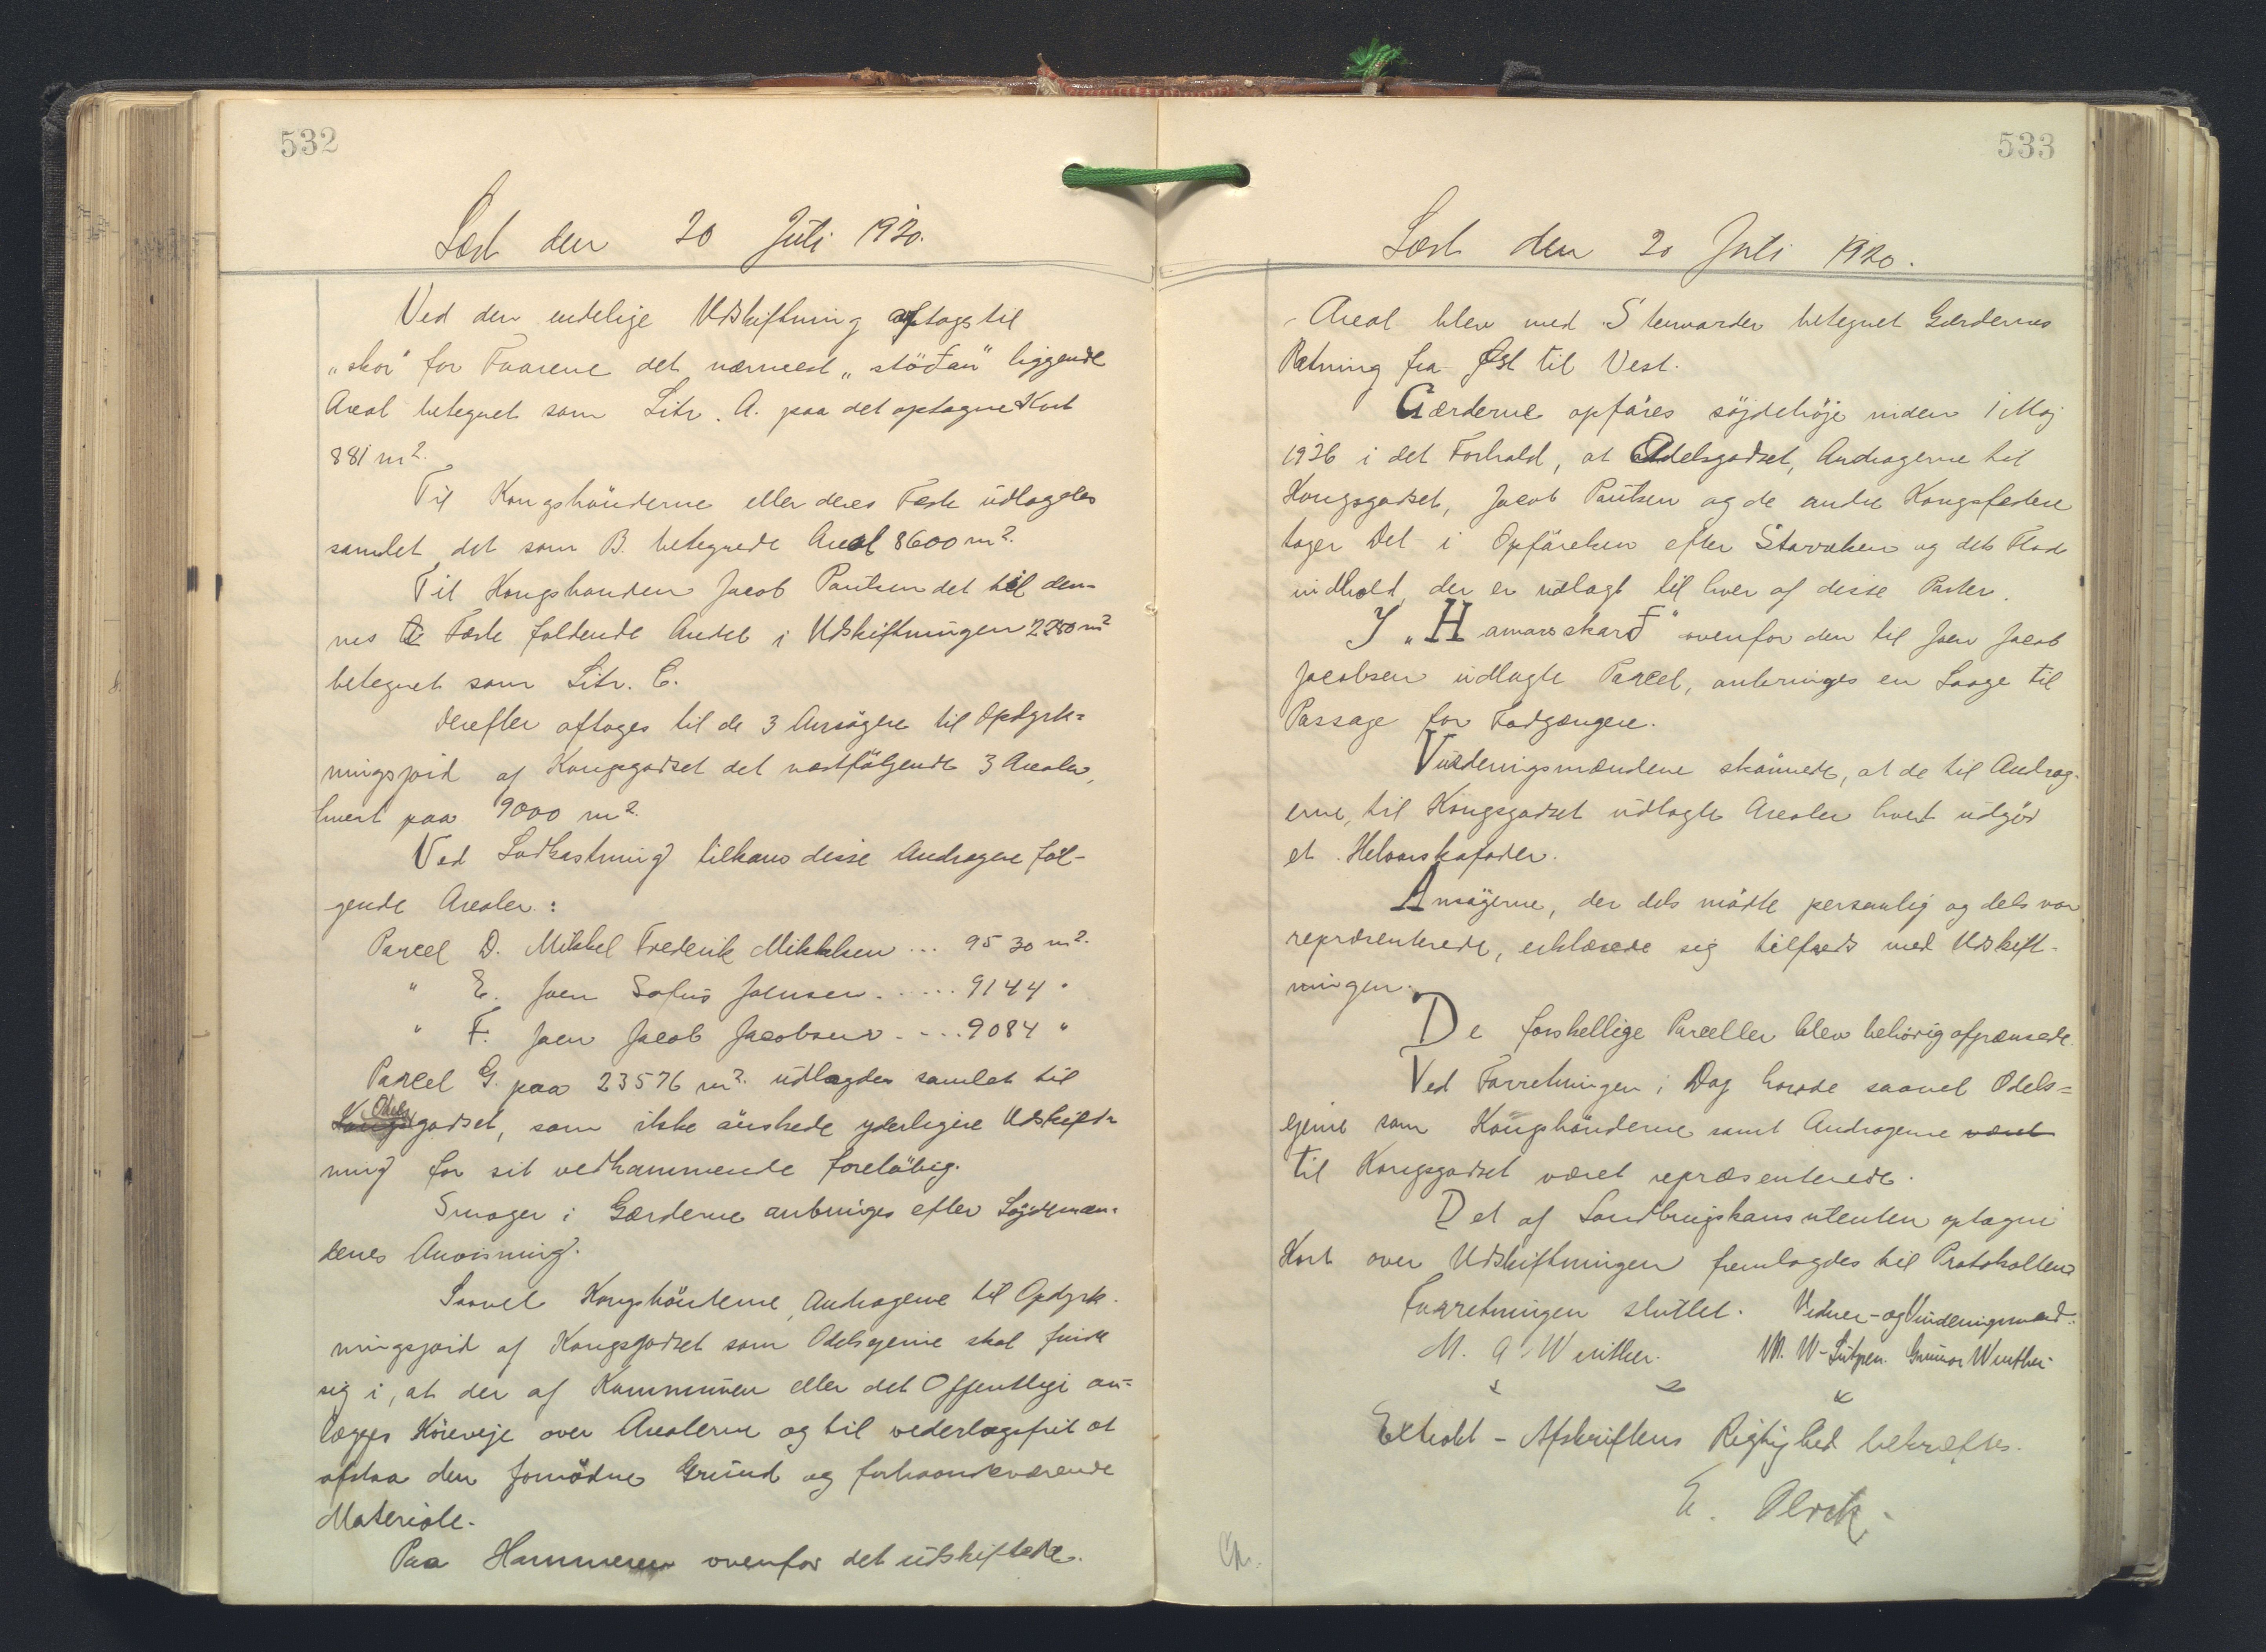 532
Læst den 20 Juli 1920.
Ved den endelige Udskiftning aftoges til
„skor" for Faarene det nærmest „stöðan" liggende
Areal betegnet som Litr. A. paa det optagne Kort
881 m².
Til Kongsbönderne eller deres Fæste udlagdes
samlet det som B. betegnede Areal 8600 m².
Til Kongsbonden Jacob Poulsen det til den-
nes Fæste faldende Andel i Udskiftningen 2250 m²
betegnet som Litr. C.
Derefter aftoges til de 3 Ansögere til Opdyrk=
ningsjord af Kongsgodset det næstfölgende 3 Arealer,
hvert paa 9000 m².
Ved Lodkastning tilkom disse Andragere föl-
gende Arealer:
Parcel D. Mikkel Frederik Mikkelsen ... 9530 m².
" E. Joen Sofus Joensen ..... 9144 "
" F. Joen Jacob Jacobsen .... 9084 "
Parcel G. paa 23576 m². udlagdes samlet til
Odels
Kongsgodset, som ikke önskede yderligere Udskift-
ning for sit vedkommende foreløbig.
Smoger i Gærderne anbringes efter Søjdemæn-
denes Anvisning.
Saavel Kongsbönderne, Andragerne til Opdyrk-
ningsjord af Kongsgodset som Odelsejerne skal finde
sig i, at der af Kommunen eller det Offentlige an=
lægges Köreveje over Arealerne og til vederlagsfrit at
afstaa den fornödne Grund og forhaandenværende
Materiale.
Paa Hammeren ovenfor det udskiftede
533
Læst den 20 Juli 1920.
Areal blev med Stenvarder betegnet Gærdernes
Retning fra Øst til Vest.
Gærderne opföres söjdehöje inden 1 Maj
1926 i det Forhold, at Odelsgodset, Andragerne til
Kongsgodset, Jacob Poulsen og de andre Kongsfæstere
tager Del i Opförelsen efter Størrelsen og dets Flade
indhold, der er udlagt til hver af disse Parter.
I „Hamarsskarð" ovenfor den til Joen Jacob
Jacobsen udlagte Parcel, anbringes en Laage til
Passage for Fodgængere.
Vurderingsmændene skönnede, at de til Andrag-
erne til Kongsgodset udlagte Arealer hvert udgör
et Helaarskofoder.
Ansögerne, der dels mödte personlig og dels var
repræsenterede, erklærede sig tilfreds med Udskift-
ningen.
De forskellige Parceller blev behörig afgrænsede.
Ved Forretningen i Dag havde saavel Odels=
ejerne som Kongsbönderne samt Andragerne været
til Kongsgodset været repræsenterede.
Det af Landbrugskonsulenten optagne
Kort over Udskiftningen fremlagdes til Protokollen
Forretningen sluttet. Vidner- og Vurderingsmænd.
M. A. Winther. M. W- Lützen. Gunnar Winther
Extrakt - Afskriftens Rigtighed bekræftes.
E. Olrik.